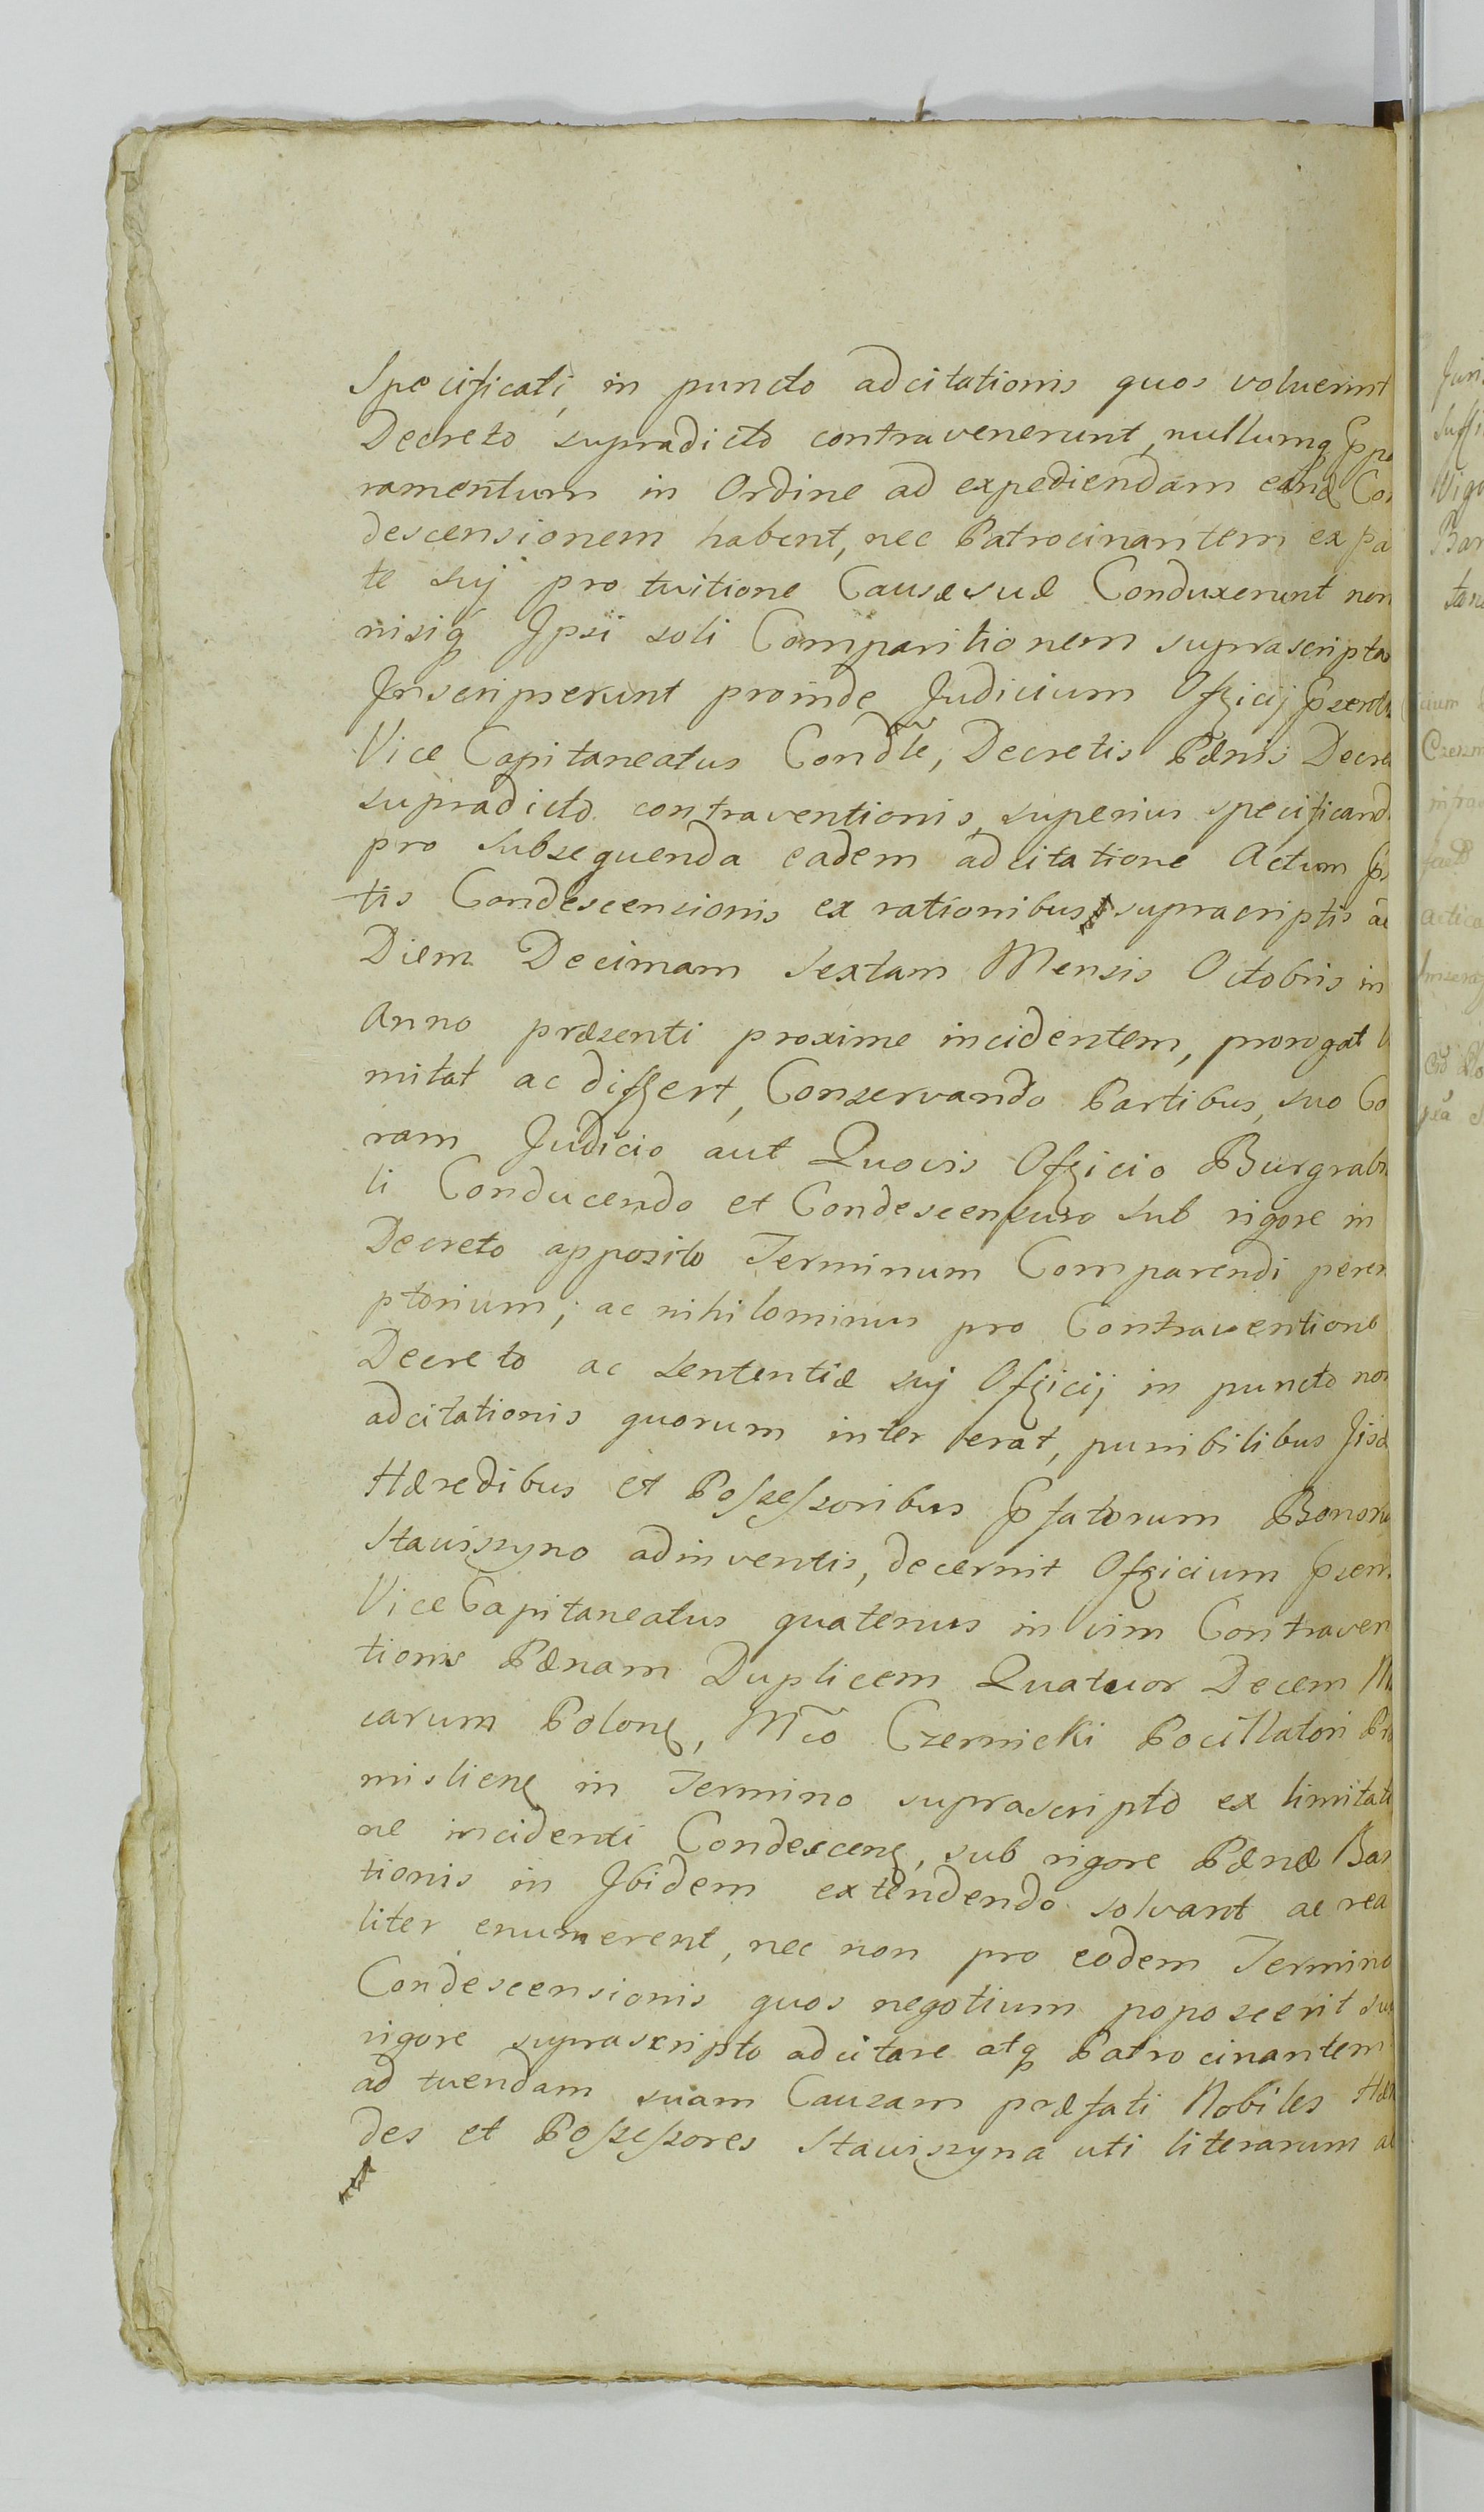 Specificati, in puncto adcitationis quos voluerint
Decreto supradicto contravenerunt, nullumq
ramentum in Ordine ad expediendam eand Con
descensionem habent, nec Patrocinantem ex pa
te suj pro tuitione Causæ suæ Conduxerunt non
nisiq Ipsi soli Comparitionem suprascripta
Inscripserunt proinde Judicium Officij
Vice Capitaneatus Condle, Decretis Pænis Decre
supradicto contraventionis, superius specificand
pro subsequenda eadem adcitatione Actum
tis Condescensionis ex rationibus supracriptis ad
Diem Decimam Sextam Mensis Octobris in
Anno præsenti proxime incidentem, prorogat
mitat ac differt, Conservando Partibus, suo Co
ram Judicio aut Quovis Officio Burgrabi
li Conducendo et Condescensuro sub rigore in
Decreto apposito Terminum Comparendi perem
ptorium, ac nihilominus pro Contraventione
Decreto ac sententiæ suj Officij in puncto non
adcitationis quorum inter erat, punibilibus Jisd
Hæredibus et Possessoribus Pfatorum Bonoru
Stawiszyno adinventis, decernit Officium
Vice Capitaneatus quatenus in vim Contraven
tionis Pænam Duplicem Quatuor Decem M
carum Polonę, Mco Czernicki Pocillatori
mislienę in Termino suprascripto ex limitati
ne incidenti Condescenę, sub rigore Pænæ Ban
tionis in Ibidem extendendo solvant ac rea
liter enumerent, nec non pro eodem Termino
Condescensionis quos negotium poposcerit su
rigore suprascripto adcitare atq Patrocinantem
ad tuendam suam Causam præfati Nobiles Hær
des et Possessores Stawiszyna uti literarum